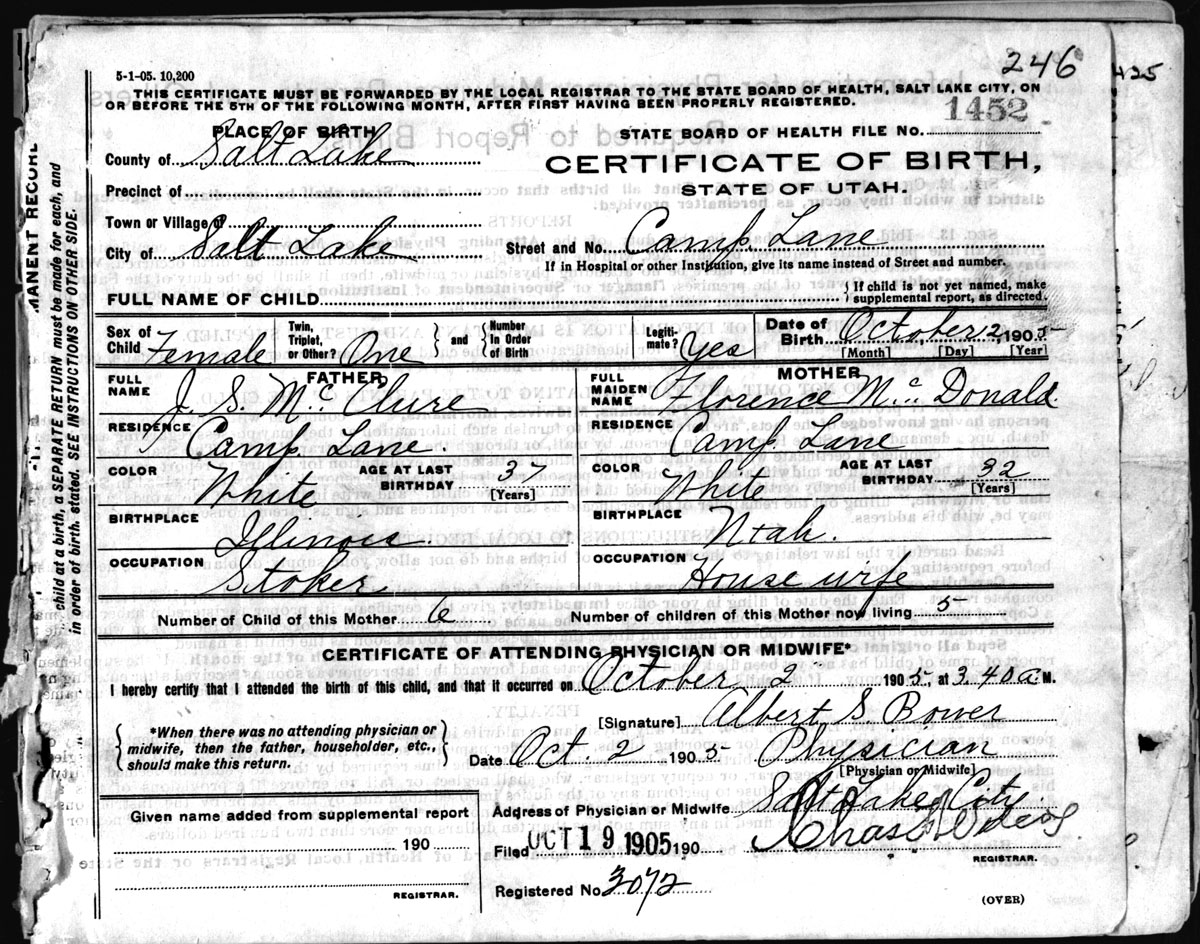 246
425
5-1-05. 10,200
THIS CERTIFICATE MUST BE FORWARDED BY THE LOCAL REGISTRAR TO THE STATE BOARD OF HEALTH, SALT LAKE CITY, ON
OR BEFORE THE 5TH OF THE FOLLOWING MONTH, AFTER FIRST HAVING BEEN PROPERLY REGISTERED.
1452
PLACE OF BIRTH
STATE BOARD OF HEALTH FILE NO.
County of Salt Lake
CERTIFICATE OF BIRTH,
Precinct of
STATE OF UTAH.
Town or Village of
City of Salt Lake
Street and No. Camp Lane
If in Hospital or other Institution, give its name instead of Street and number.
FULL NAME OF CHILD
{ If child is not yet named, make
supplemental report, as directed.
Sex of Child Female
Twin, Triplet, or Other? One } and { Number in Order of Birth
Legitimate? Yes
Date of Birth October 2, 1905
[Month] [Day] [Year]
FATHER
FULL NAME J. S. McClure
RESIDENCE Camp Lane.
COLOR White
AGE AT LAST BIRTHDAY 37
[Years]
BIRTHPLACE Illinois
OCCUPATION Stoker
MOTHER
FULL MAIDEN NAME Florence McDonald.
RESIDENCE Camp Lane
COLOR White
AGE AT LAST BIRTHDAY 32
[Years]
BIRTHPLACE Utah.
OCCUPATION House wife
Number of Child of this Mother 6
Number of children of this Mother now living 5
CERTIFICATE OF ATTENDING PHYSICIAN OR MIDWIFE*
I hereby certify that I attended the birth of this child, and that it occurred on October 2 1905, at 3.40 a M.
{ *When there was no attending physician or
midwife, then the father, householder, etc.,
should make this return. }
[Signature] Albert S. Bower
Date Oct. 2 1905 Physician
[Physician or Midwife]
Address of Physician or Midwife Salt Lake City
Given name added from supplemental report
190
REGISTRAR.
Filed OCT 19 1905 190 Chas
REGISTRAR.
Registered No. 3072
(OVER)
MANENT RECORD
child at a birth, a SEPARATE RETURN must be made for each, and
in order of birth. stated. SEE INSTRUCTIONS ON OTHER SIDE.